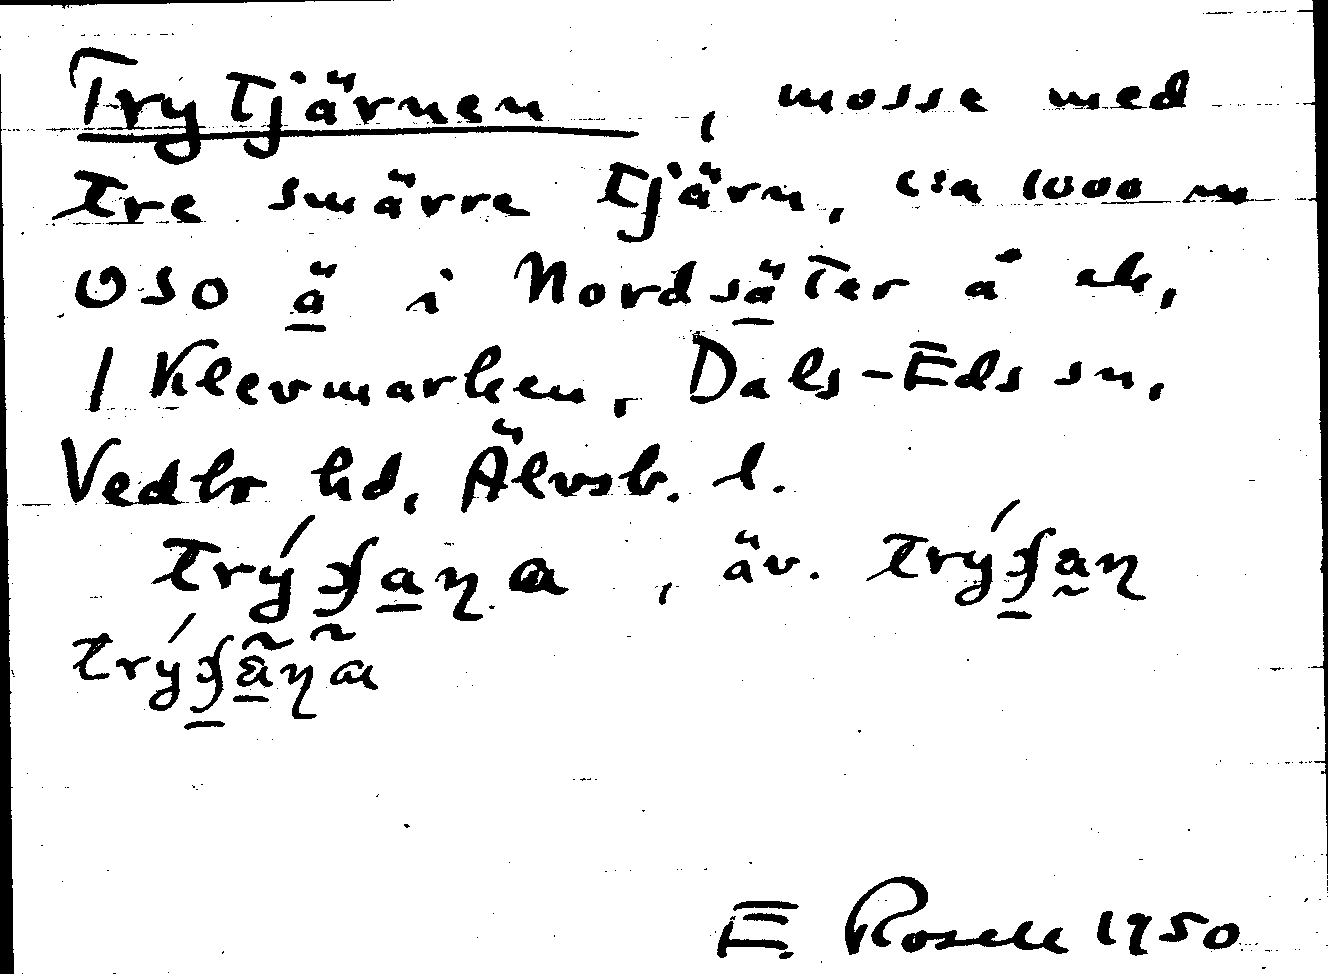 Trytjärnen, mosse med
tre smärre tjärn, c:a 1000 m
OSO ä i Nordsäter å ek,
1 Klevmarken, Dals-Eds sn,
Vedbo hd, Älvsb. l.
, äv.
E. Rosell 1950